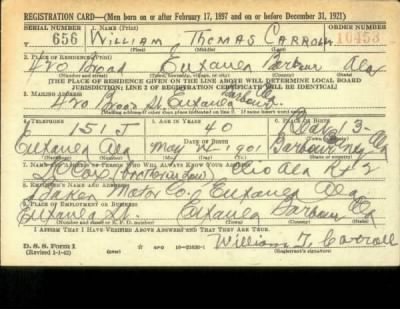 REGISTRATION CARD—(Men born on or after February 17, 1897 and on or before December 31, 1921)
SERIAL NUMBER 1. NAME (Print) ORDER NUMBER
656 William Thomas Carroll 10453
(First) (Middle) (Last)
2. PLACE OF RESIDENCE (Print)
420 Broad Euxaula Barbour Ala
(Number and street) (Town, township, village, or city) (County) (State)
[THE PLACE OF RESIDENCE GIVEN ON THE LINE ABOVE WILL DETERMINE LOCAL BOARD
JURISDICTION; LINE 2 OF REGISTRATION CERTIFICATE WILL BE IDENTICAL]
3. MAILING ADDRESS
420 Broad St. Euxaula Barbour
4. TELEPHONE 5. AGE IN YEARS 6. PLACE OF BIRTH
151 J 40
DATE OF BIRTH
Euxaula Ala May 1901 Barbour
7. NAME AND ADDRESS OF PERSON WHO WILL ALWAYS KNOW YOUR ADDRESS
Clio Ala Rt 2
8. EMPLOYER'S NAME AND ADDRESS
Motor Co. Euxaula Ala
9. PLACE OF EMPLOYMENT OR BUSINESS
Euxaula Barbour Ala
(Number and street or R. F. D. number) (Town) (County) (State)
I AFFIRM THAT I HAVE VERIFIED ABOVE ANSWERS AND THAT THEY ARE TRUE.
William T. Carroll
D. S. S. Form 1
(Revised 1-1-42) (Registrant's signature)